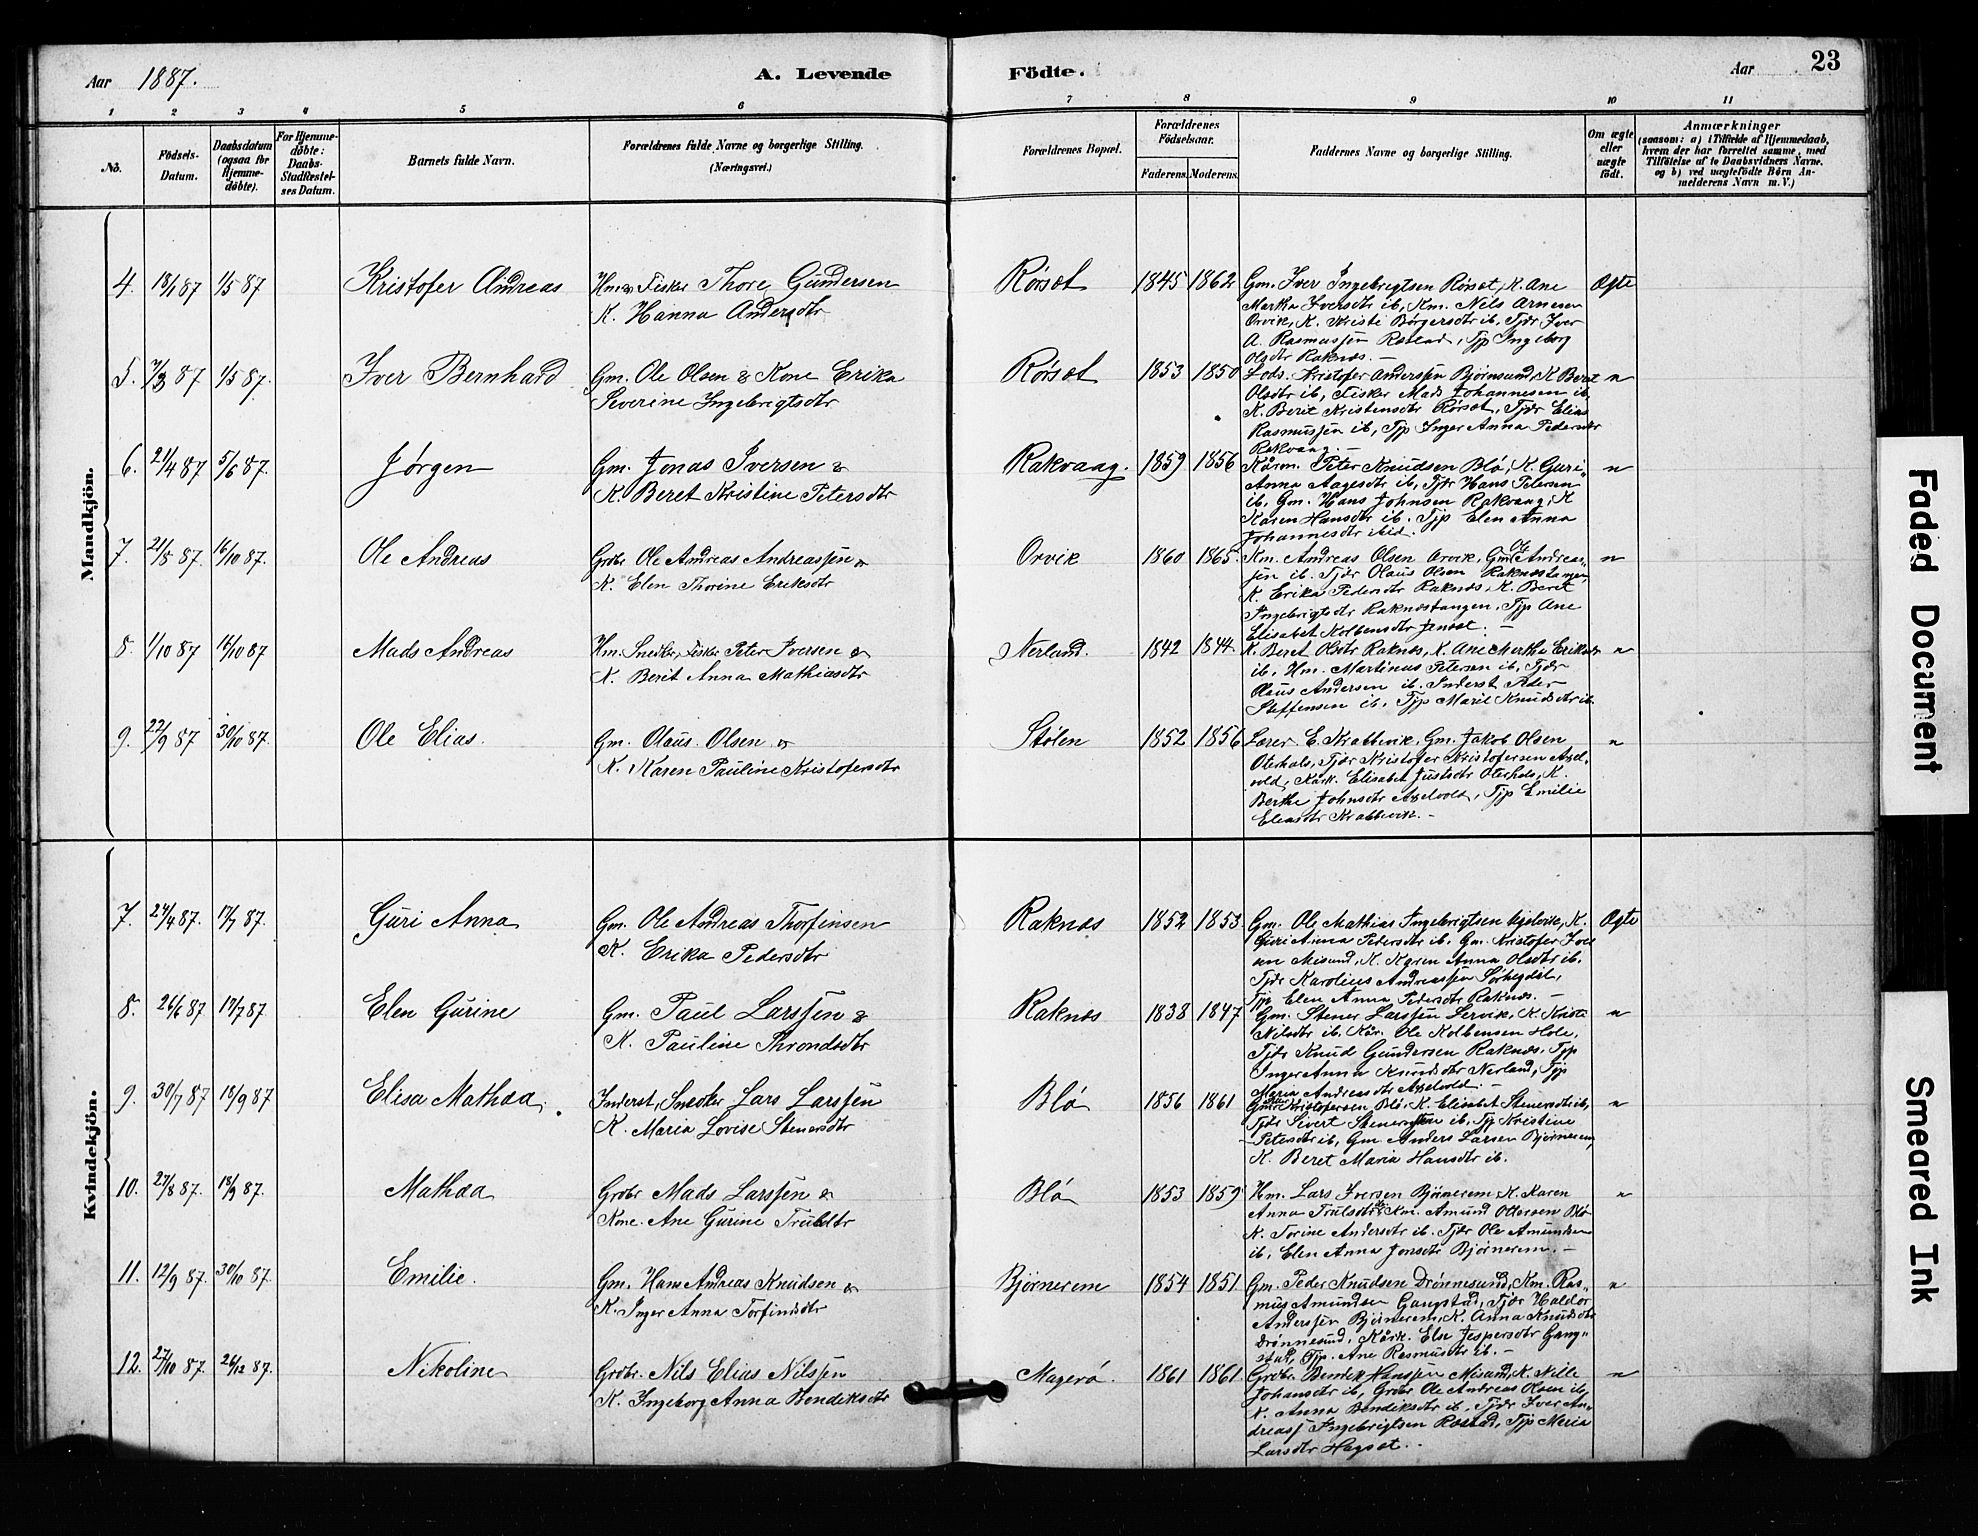 Aar 1887. A. Levende Födte. Aar 23
1 2 3 4 5 6 7 8 9 10 11
No. Födsels-Datum. Daabsdatum (ogsaa for Hjemme-döbte). For Hjemme-döbte: Daabs-Stadfæstelses Datum. Barnets fulde Navn. Forældrenes fulde Navne og borgerlige Stilling. (Næringsvei.) Forældrenes Bopæl. Forældrenes Födselsaar. Faderens. Moderens. Faddernes Navne og borgerlige Stilling. Om ægte eller uægte født. Anmærkninger
(saasom: a) i Tilfælde af Hjemmedaab,
hvem der har forrettet samme, med
Tilföielse af to Daabsvidners Navne.
og b) ved uægtefödte Börn An-
melderens Navn m. V.)
Mandkjön.
4. 18/1 87 1/5 87 Kristofer Andreas Hm & Fisker Thore Gundersen Rørset 1845 1862 Gm. Iver Ingebrigtsen Rørset, K. Ane Ægte
K. Hanna Andersdtr Martha Iversdtr ib, Km. Nils Arnesen
Orvik, K. Kristi Børgersdtr ib, Tjdr Iver
A. Rasmussen Røstad, Tjp Ingeborg
Olsdtr Raknes. —
5. 7/3 87 1/5 87. Iver Bernhard Gm. Ole Olsen & Kone Erika Rørset 1853 1850 Lods. Kristofer Anderssen Bjørnsund, K Beret "
Severine Ingebrigtsdtr Olsdtr ib, Fisker Mads Johannesen ib,
K. Berit Kristensdtr Rørset, Tjdr Elias
Rasmussen ib, Tjp Inger Anna Pedersdtr
Rakvaag. —
6. 21/4 87 5/6 87. Jørgen Gm. Jonas Iversen & Rakvaag. 1859 1856 Kårm. Peter Knudsen Blø, K. Guri "
K. Beret Kristine Petersdtr Anna Aagesdtr ib, Tjdr Hans Petersen
ib. Gm. Hans Johnsen Rakvaag, K
Karen Hansdtr ib. Tjp Elen Anna
Johannesdtr ibid.
7. 21/5 87 16/10 87. Ole Andreas Grdbr Ole Andreas Andreassen & Orvik 1860 1865. Km. Andreas Olsen Orvik, Gm Ole Andreas- "
K. Elen Thorine Eriksdtr sen ib. Tjdr Olaus Olsen Raknestangen,
K. Erika Pedersdtr Raknes, K. Beret
Ingebrigtsdtr Raknestangen, Tjp Ane
Elisabet Kolbensdtr Jenset. —
8. 1/10 87 16/10 87 Mads Andreas Hm. Snedker, Fisker Peter Iversen & Nerland. 1842 1844. K. Beret Olsdtr Raknes, K. Ane Martha Eriksdtr "
K. Berit Anna Mathiasdtr ib, Hm. Martinus Petersen ib, Tjdr
Olaus Andersen ib. Inderst Peder
Steffensen ib, Tjp Marit Knudsdtr ib.
9. 22/9 87 30/10 87. Ole Elias. Gm. Olaus Olsen & Stølen 1852 1856 Lærer E. Krabbevik, Gm. Jakob Olsen "
K. Karen Pauline Kristofersdtr Oterhals, Tjdr Kristofer Kristofersen Axel-
vold, Kårk. Elisabet Justsdtr Oterhals, K.
Berthe Johnsdtr Axelvold, Tjp Emilie
Eliasdtr Krabbevik. —
Kvindekjön.
7. 24/4 87. 17/7 87. Guri Anna Gm. Ole Andreas Thorfinsen Raknes 1852 1853. Gm. Ole Mathias Ingebrigtsen, K. Ægte
K. Erika Pedersdtr Guri Anna Pedersdtr ib. Gm. Kristofer Iver
sen Misund, K. Karen Anna Olsdtr ib.
Tjdr Karolius Andreassen,
Tjp Elen Anna Pedersdtr Raknes. —
8. 26/6 87 17/7 87. Elen Gurine Gm. Paul Larssen & Raknes 1838 1847 Gm. Stener Larssen Lervik, K. Kristi "
K. Pauline Throndsdtr Nilsdtr ib, Kår. Ole Kolbensen Hole,
Tjdr Knud Gundersen Raknes, Tjp
Inger Anna Knudsdtr Nerland, Tjp
Maria Andreasdtr Axelvold. —
9. 30/7 87 18/9 87 Elisa Mathea. Inderst, Snedker Lars Larssen Blø 1856 1861 Gm Kristofersen Blø, K. Elisabet Stenersdtr ib, "
K. Maria Lovise Stenersdtr Tjdr Sivert Stenersen ib, Tjp Kristine
Petersdtr ib, Gm Anders Larsen Bjørnerem,
K. Beret Maria Hansdtr ib.
10. 27/8 87. 18/9 87. Mathea Grdbr Mads Larssen & Blø 1853 1859 Hm. Lars Iversen Bjørnerem, K. Karen "
Kone. Ane Gurine Trulsdtr Anna Trulsdtr ib, Km. Amund Ottersen Blø
K. Torine Andersdtr ib. Tjdr Ole Amundsen
ib, Elen Anna Jonsdtr Bjørnerem. —
11. 12/9 87. 30/10 87. Emilie. Gm. Hans Andreas Knudsen & Bjørnerem 1854 1851. Gm. Peder Knudsen Drønnesund, Km. Ras- "
K. Inger Anna Torfinsdtr mus Amundsen Gangstad, Tjdr Haldor
Anderssen Bjørnerem, K. Anna Knudsdtr
Drønnesund, Kårk. Else Jespersdtr Gang-
stad, Tjp. Ane Rasmusdtr ib. —
12. 27/10 87. 26/12 87. Nikoline Grdbr. Nils Elias Nilssen Magerø. 1861 1861. Grdbr. Bendik Hanssen Misund, K. Nille "
K. Ingeborg Anna Bendiksdtr Johansdtr ib, Grdbr Ole Andreas Olsen ib,
K. Anna Bendiksdtr ib. Tjdr Iver An-
dreas Ingebrigtsen Røstad, Tjp Maria
Larsdtr Hagset.
Faded Document
Smeared Ink